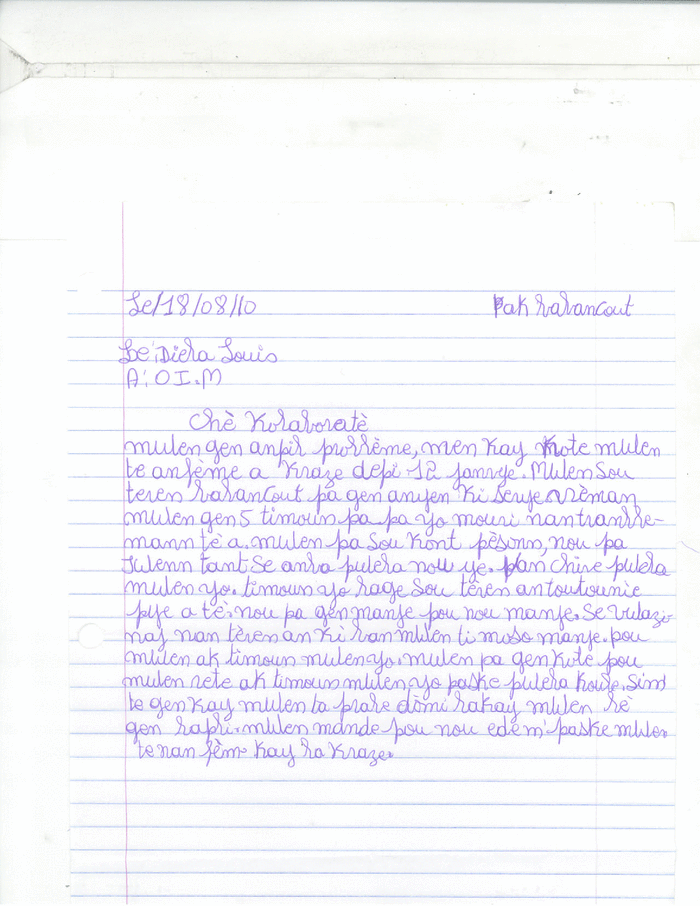 Le/18/08/10 Pak vavancout
De Diera Louis
A: O I.M
Chè Kolavoratè
mwen gen anpil porblème, men kay kote mwen
te anfème a kraze depi 12 janvye. Mwen sou
teren vavancout pa gen anyen ki senye vrèman
mwen gen 5 timoun pa pa yo mouri nan tranble-
mann tè a. mwen pa sou kont pèsonn, nou pa
tant se anba pwela nou ye. plan chire pwela
mwen yo. timoun yo rage sou tèren an toutounie
pye a tè. nou pa gen manje pou nou manje. se vwazi-
naj nan tèren an ki van mwen ti moso manje. pou
mwen ak timoun mwen yo. mwen pa gen kote pou
mwen rete ak timoun mwen yo paske pwela koule. Simt
te gen kay mwen ta prare dòmi rakay mwen kè
gen rapri. mwen mande pou nou edem' paske mwen
te nan fèm kay ra kraze.